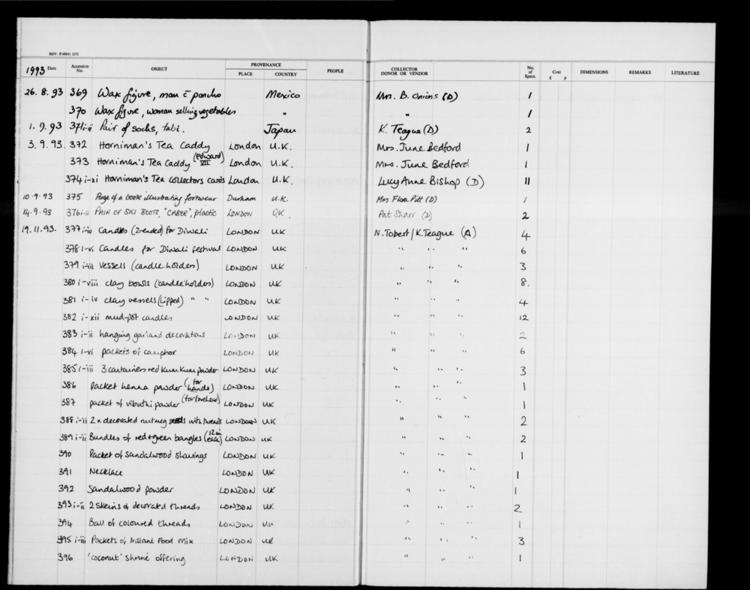 1993 Date Accession No. OBJECT PROVENANCE PLACE COUNTRY PEOPLE COLLECTOR DONOR OR VENDOR No. of Spms. Cost £ p DIMENSIONS REMARKS LITERATURE
26.8.93 369 Wax figure, man c̄ poncho Mexico Mrs. B. (D) 1
370 Wax figure, woman selling vegetables " " 1
1.9.93 371i-ii Pair of socks, tabi. Japan K. Teague (D) 2
3.9.93 372 Horniman's Tea Caddy London U.K. Mrs. June Bedford 1
373 Horniman's Tea Caddy (Edward VII) London U.K. Mrs. June Bedford 1
374 i-xi Horniman's Tea Collectors cards London U.K. Lucy Anne Bishop (D) 11
10.9.93 375 Page of a book illustrating footwear Durham U.K. Mrs Flora Pitt (D) 1
14.9.93 376i-ii PAIR OF SKI BOOTS, "CABER", plastic LONDON UK Pat Short (D) 2
19.11.93. 377 i-iv Candles (2-ended) for Diwali LONDON UK N. Tobert / K. Teague (A) 4
378 i-vi Candles for Diwali festival LONDON UK " " " 6
379 i-iii Vessels (candle holders) LONDON UK " " " 3
380 i-viii clay bowls (candle holders) LONDON UK " " " 8.
381 i-iv clay vessels (lipped) " " LONDON UK " " " 4
382 i-xii mud-pot candles LONDON UK " " " 12
383 i-ii hanging garland decorations LONDON UK " " " 2
384 i-vi packets of camphor LONDON UK " " " 6
385 i-iii 3 containers red Kum Kum powder LONDON UK " " " 3
386 Packet henna powder (for hands) LONDON UK " " " 1
387 packet of vibuthi powder (for forehead) LONDON UK " " " 1
388 i-ii 2 x decorated nutmeg seeds with threads LONDON UK " " " 2
389 i-ii Bundles of red + green bangles (12 in each) LONDON UK " " " 2
390 Packet of Sandalwood shavings LONDON UK " " " 1
391 Necklace LONDON UK " " " 1
392 Sandalwood powder LONDON UK " " " 1
393 i-ii 2 skeins of decorated threads LONDON UK " " " 2
394 Ball of coloured threads LONDON UK " " " 1
395 i-iii Packets of Instant Food Mix LONDON UK " " " 3
396 'coconut' shrine offering LONDON UK " " " 1